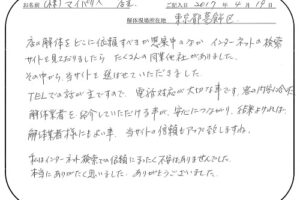 お名前 (株)マイパリス 店主 ご記入日 2017年4月19日
解体現場所在地 東京都葛飾区
店の解体をどこに依頼すべきか思案中のなか インターネットの検索
サイトを見ておりましたら たくさんの同業他社がありました。
その中から当サイトを選ばせていただきました。
TELでの話が主ですので、電話対応が大切な事です。
解体業者を紹介していただける事が、安心につながり、結果よければ、
解体業者様にもよい事、当サイトの信頼もアップと話しますね。
私はインターネット検索での依頼にまったく不安はありませんでした。
本当にありがたく思いました。ありがとうございました。